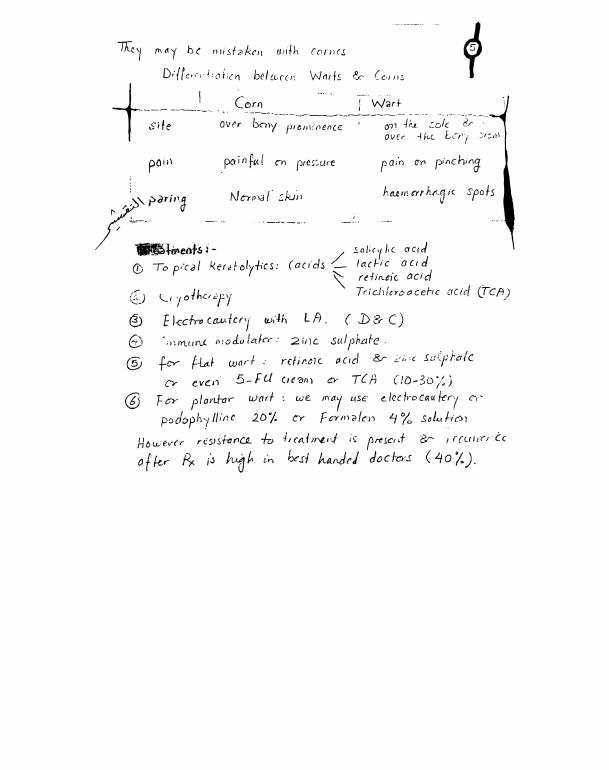 5
They may be mistaken with cornes
Differentiation between Warts & Corns
Corn Wart
site over bony prominence on the sole &
over the bony prom.
pain painful on pressure pain on pinching
paring Normal skin haemorrhagic spots
tments:-
① Topical keratolytics: (acids
salicylic acid
lactic acid
retinoic acid
Trichloroacetic acid (TCA)
② Cryotherapy
③ Electrocautery with LA. (D&C)
④ immune modulater: zinc sulphate.
⑤ for flat wart: retinoic acid & zinc sulphate
or even 5-FU cream or TCA (10-30%)
⑥ For plantar wart: we may use electrocautery or
podophylline 20% or Formalen 4% solution
However resistance to treatment is present & recurrence
after Rx is high in best handed doctors (40%).